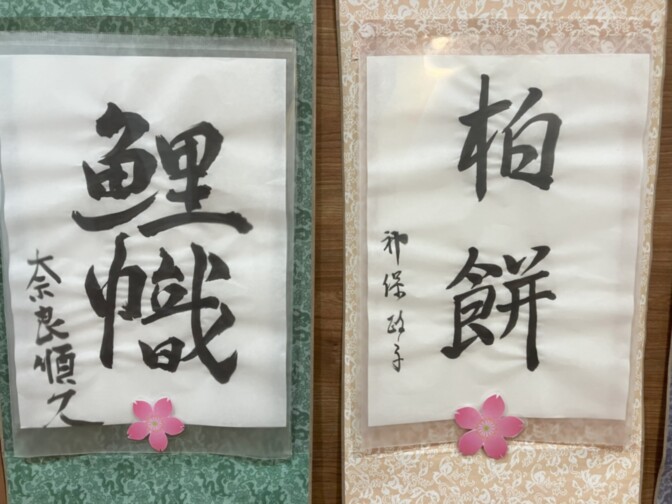 柏餅
神保政子
鯉幟
奈良順久